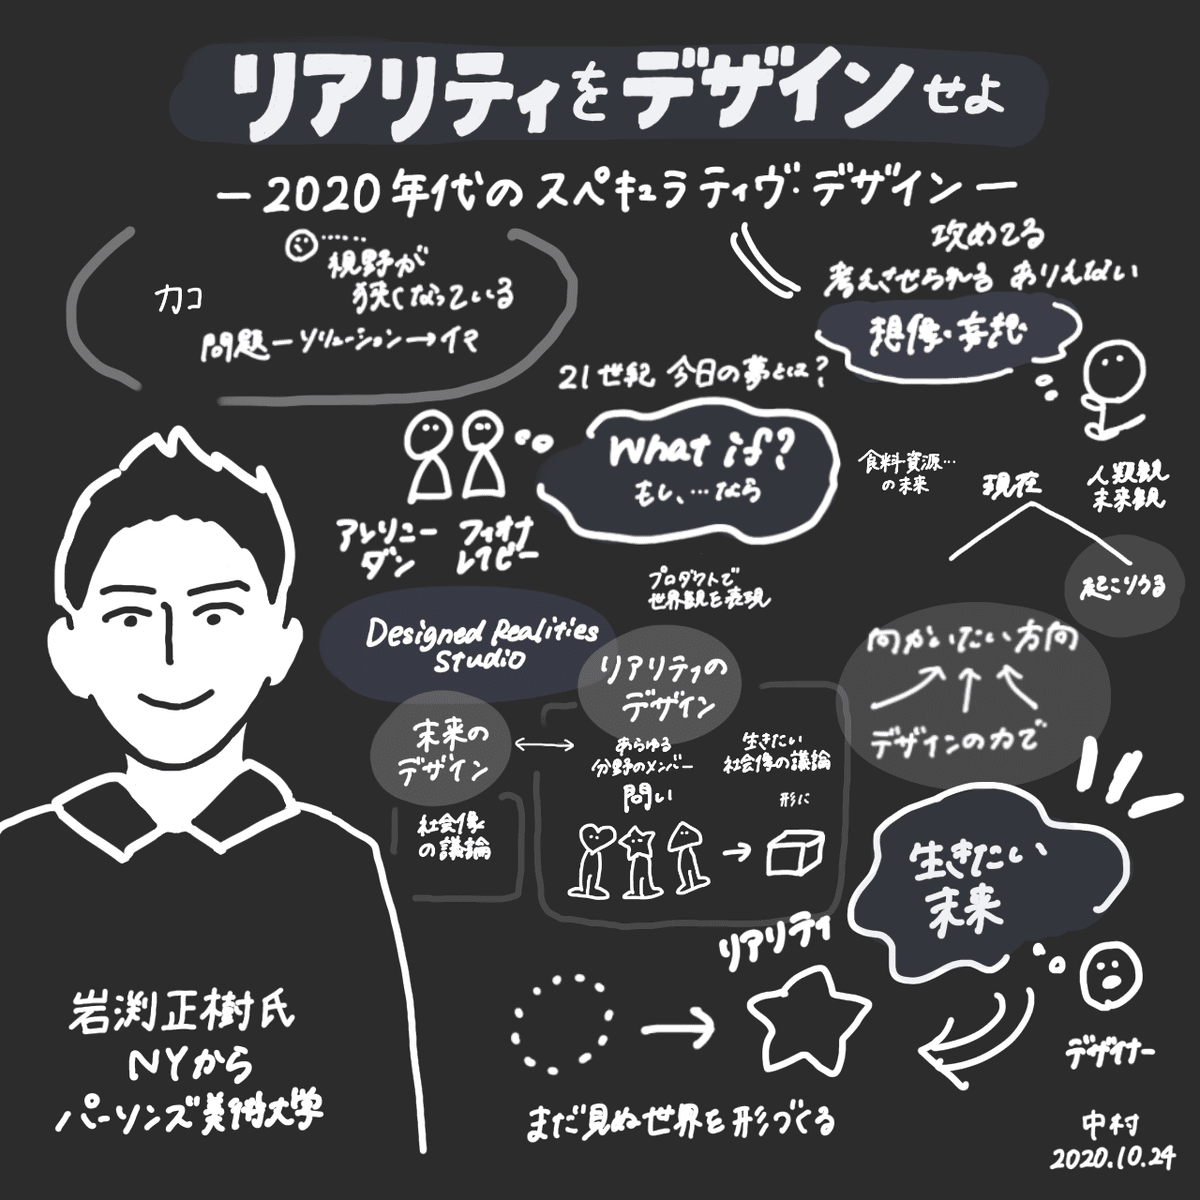 リアリティをデザインせよ
ー2020年代のスペキュラティヴ・デザインー
カコ
視野が
狭くなっている
問題ーソリューション→イマ
攻めてる
考えさせられる ありえない
想像・妄想
21世紀 今日の夢とは?
What if?
もし、…なら
アンソニー
ダン
フィオナ
レイビー
プロダクトで
世界観を表現
食料・資源…
の未来
現在
人類観
未来観
起こりうる
向かいたい方向
デザインの力で
Designed Realities
Studio
リアリティの
デザイン
未来の
デザイン
社会像
の議論
あらゆる
分野のメンバー
問い
生きたい
社会像の議論
形に
生きたい
未来
リアリティ
デザイナー
まだ見ぬ世界を形づくる
岩渕正樹氏
NYから
パーソンズ美術大学
中村
2020.10.24